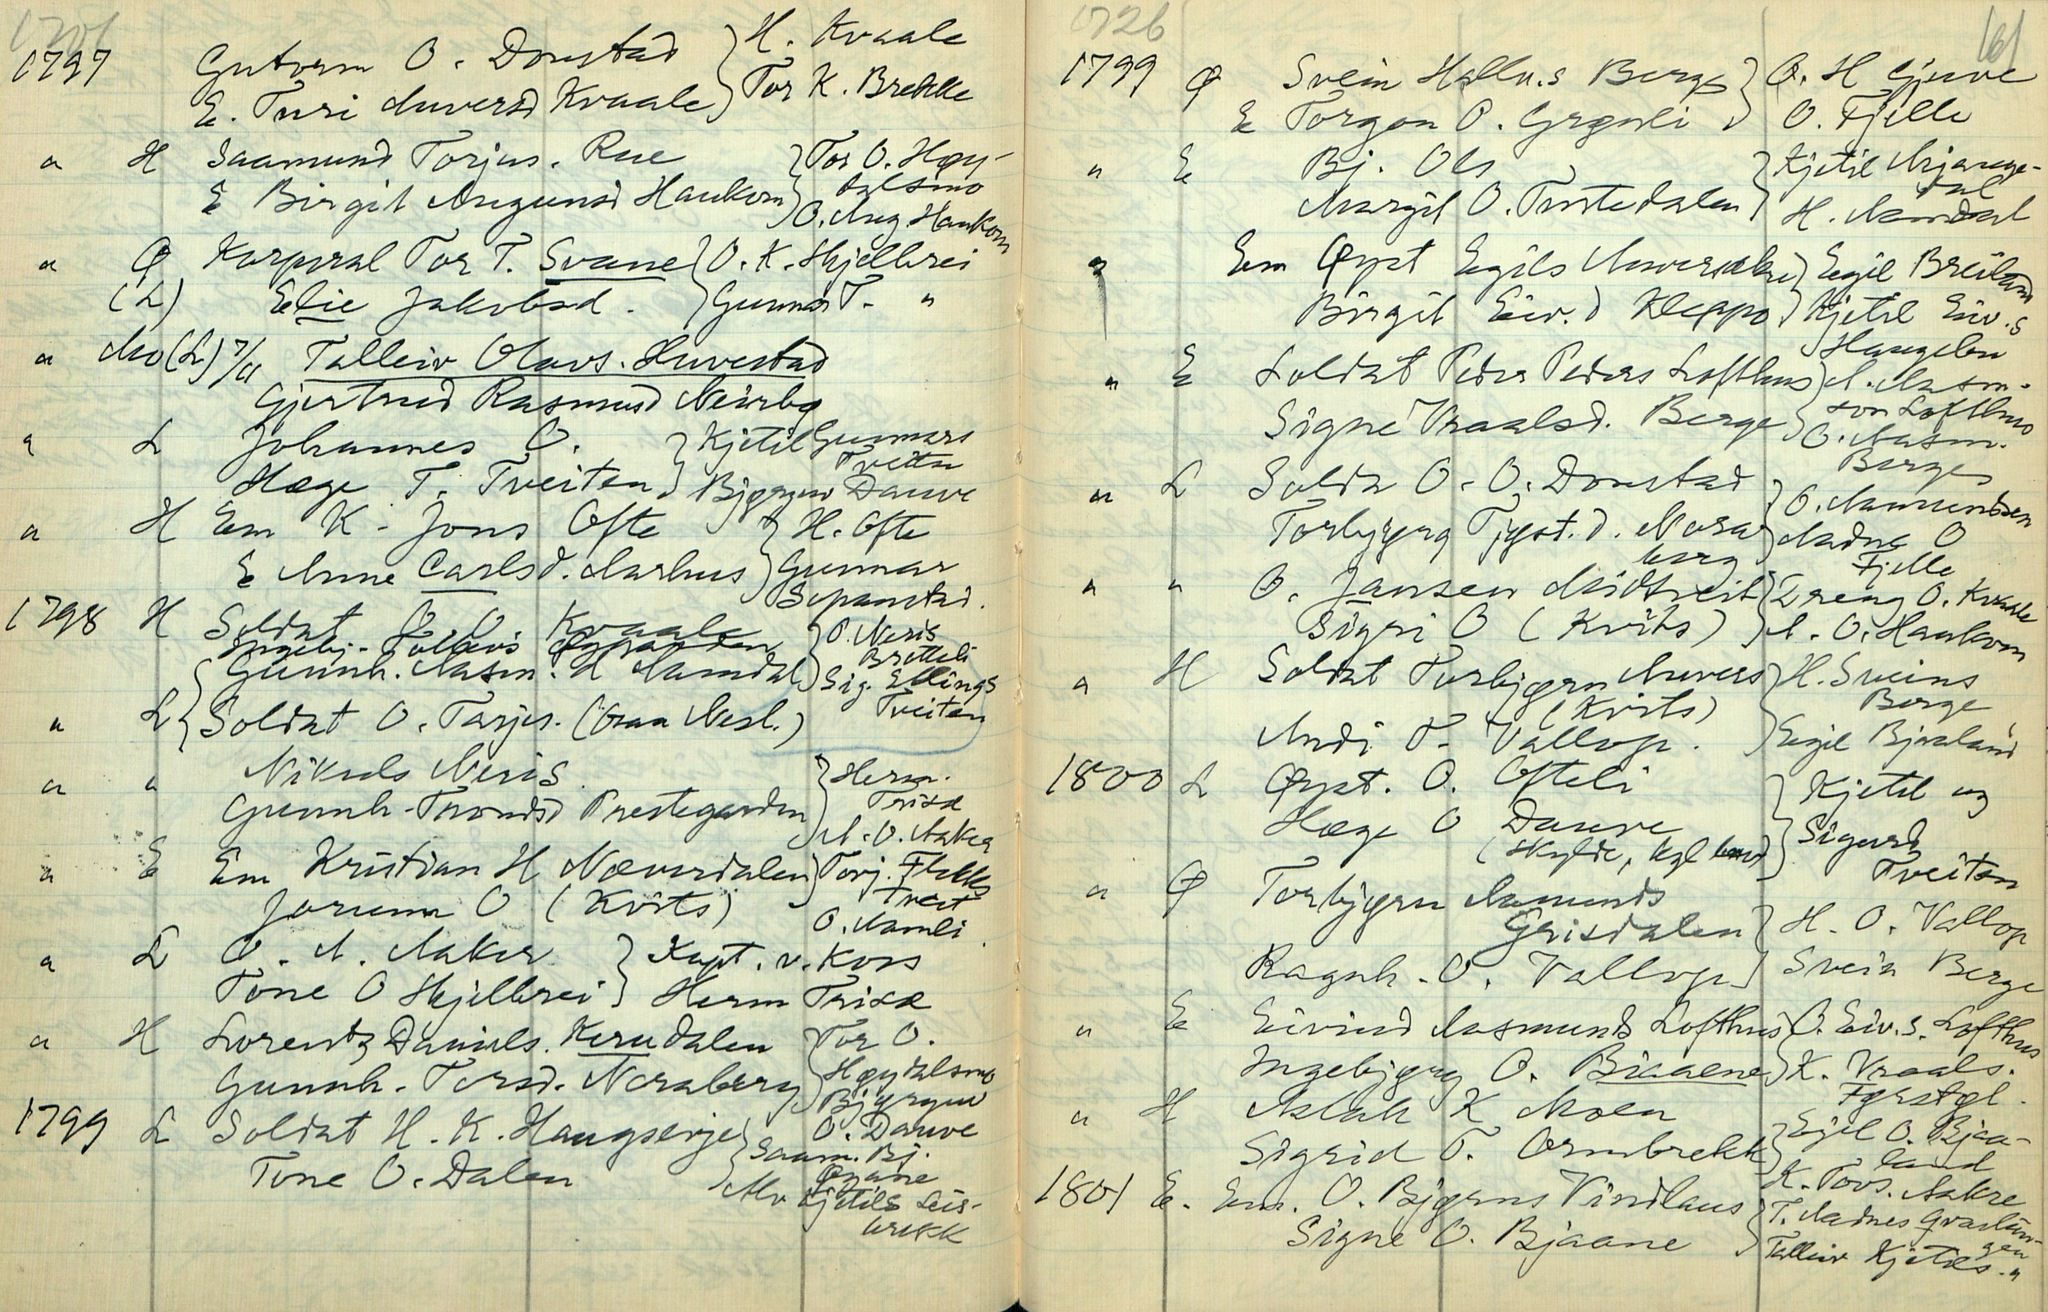 1797 Gutorm O. Donstad } H. Kvaale
E. Turi Auversd Kvaale } Tor K. Brekke
" H Saamund Torjus. Rue } Tor O. Høy-
dalsmo
E Birgit Augunsd Haukom } O. Aug. Haukom
" Ø Korporal Tor T. Svane } O. K. Hjelbrei
(L) Elie Jakobsd. } Gunnar T. "
" Mo (L) 7/11 Talleiv Olavs. Huvestad
Gjertrud Rasmusd Neirbø
" L Johannes O. } Kjetil Gunnars
Tveiten
Hæge T. Tveiten } Bjørguv Dauve
" H Em K. Jons Ofte } H. Ofte
E Anne Carlsd. Aarhus } Gunnar
1798 H Soldat O O Kvaale } O. Neris
Bretteli
Gunnh. Aasm. d Aamdal } Sig. Ellings
Tveiten
" L { Soldat O. Tarjes. (Graa Nesl.)
" " Nikuls Neris } Herm.
Trisæ
Gunnh. Trondsd Prestegarden } A. O. Aaker
" E Em Kristian H Næverdalen } Torj. Flekk
tveit
Jorunn O (Kvits) O. Aamli.
" L O. A. Aaker } Kapt. v. Koss
Tone O Hjelbrei } Herm Trisæ
" H Lorentz Daniels. Kerudalen } Tor O.
Høydalsmo
Gunnh. Torsd. Noraberg } Bjørguv
O. Dauve
1799 L Soldat H. K. Haugserje } Saam. Bj.
Øyane
Tone O. Dalen } Alv Kjetils Leis-
brekk
1726 61
1799 Ø Svein Hallv.s Berge } O. H Gjuve
E Torgon O. Grønli } O. Fjelle
" E Bj. Ols } Kjetil Mjaauge-
dal
Margit O. Tustedalen } H. Aamdal
" Em Øyst Egils Auversakre } Egil Breiland
Birgit Eiv.d Kleppo } Kjetil Eiv.s
Haugelen
" E Soldat Peder Peders Lofthus } A. Aasm.
son Lofthus
Signe Vraalsd. Berge } O. Aasm.
Berge
" L Solda O. O. Donstad } O. Aamundsen
Torbjørg Tjøst.d. Nora
berg } Aadne O
Fjelle
" " O. Jansen Midtveit } Dreng O. Kvaale
Sigri O (Kvits) } A. O. Haukom
" H Soldat Torbjørn Auvers } H. Sveins
Berge
(Kvits)
Andi T. Vallop. } Egil Bjaaland
1800 L Øyst. O. Ofteli } Kjetil og
Hæge O Dauve } Sigurd
Tveiten
" Ø Torbjørn Aamunds
Grisdalen } H. O. Vallop
Ragnh. O. Vallop } Svein Berge
" E Eivind Aasmunds Lofthus } O. Eiv.s. Lofthus
Ingebjørg O. Bjaaene } K. Vraals.
" H Aslak K Moen } Egil O. Bjaa-
land
Sigrid T. Ormbrekk } K. Tovs. Aakre
1801 E. Em. O. Bjørns Vindlaus } T. Aadnes Gravlin-
gen
Signe O. Bjaane } Talleiv Kjetils. "